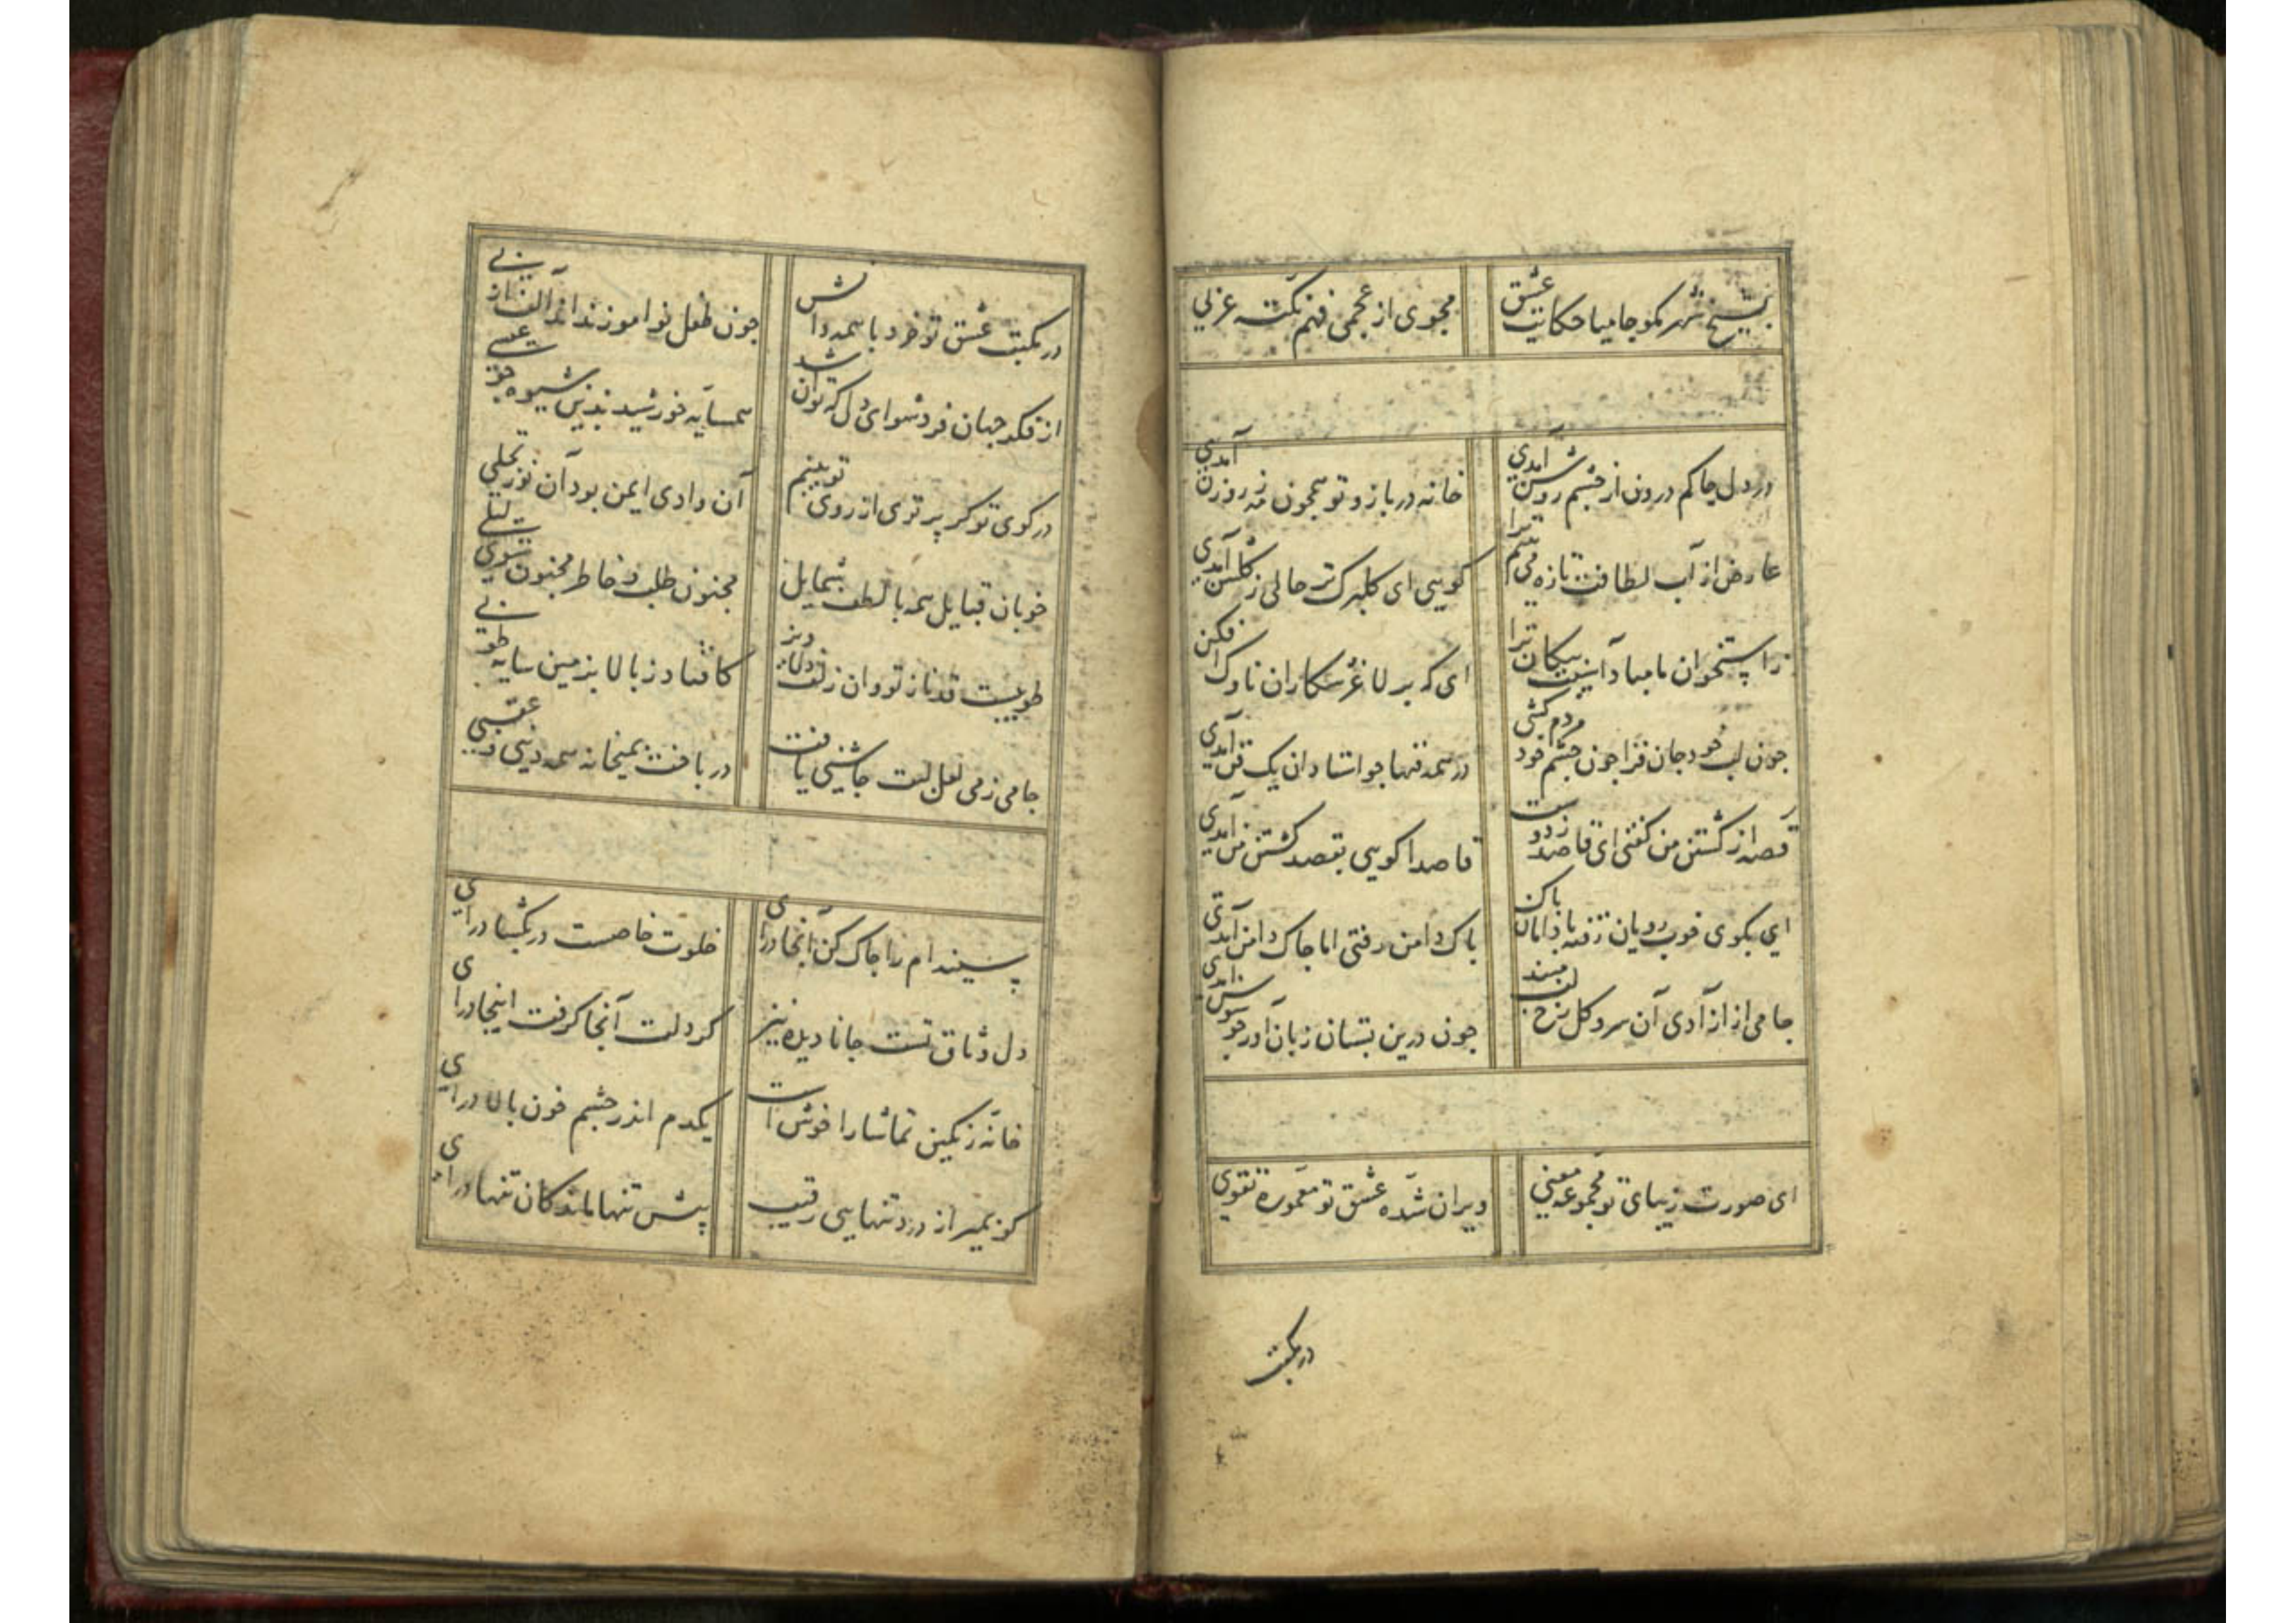 بشیخ شهر مگو جامیا حکایت عشق
مجوی از عجمی فهم نکته عربی
در دل چاکم درون از چشم روشن آمدی
خانه در باز و تو همچون مه ز روزن آمدی
عارض از آب لطافت تازه می بینم ترا
گویی ای گلبرگ تر حالی ز گلشن آمدی
ز استخوان ما مبادا آسیب پیکان ترا
ای که بر لاغر شکاران ناوک افکن آمدی
چون لب خود جان فزا چون چشم خود مردم کشی
در همه فنها چو استادان یک فن آمدی
قصه از کشتن من گفتی ای قاصد ز دوست
قاصدا گویی بقصد کشتن من آمدی
ای بکوی خوب رویان رفته با دامان پاک
پاک دامن رفتی اما چاک دامن آمدی
جامی از آزادی آن سرو گل رخ لب مبند
چون درین بستان زبان آور چو سوسن آمدی
ای صورت زیبای تو مجموعه معنی
ویران شده عشق تو معموره تقوی
در مکتب
در مکتب عشق تو خرد با همه دانش
چون طفل نو آموز نداند الف از بی
از فکر جهان فرد شو ای دل که توان شد
همسایه خورشید بدین شیوه چو عیسی
در کوی تو گر پرتوی از روی تو بینم
آن وادی ایمن بود آن نور تجلی
خوبان قبایل همه با لطف شمایل
مجنون طلب و خاطر مجنون سوی لیلی
طوبیست قد ناز تو وان زلف دلاویز
کافتاد ز بالا بزمین سایه طوبی
جامی ز می لعل لبت چاشنیی یافت
در باخت بمیخانه همه دینی و عقبی
سینه ام را چاک کن آنجا درای
خلوت خاصست در بگشا درای
دل وثاق تست جانا دیده نیز
گر دلت آنجا گرفت اینجا درای
خانه رنگین تماشا را خوش است
یکدم اندر چشم خون پالا درای
گو بمیر از درد تنهایی رقیب
پیش تنها ماندگان تنها درای